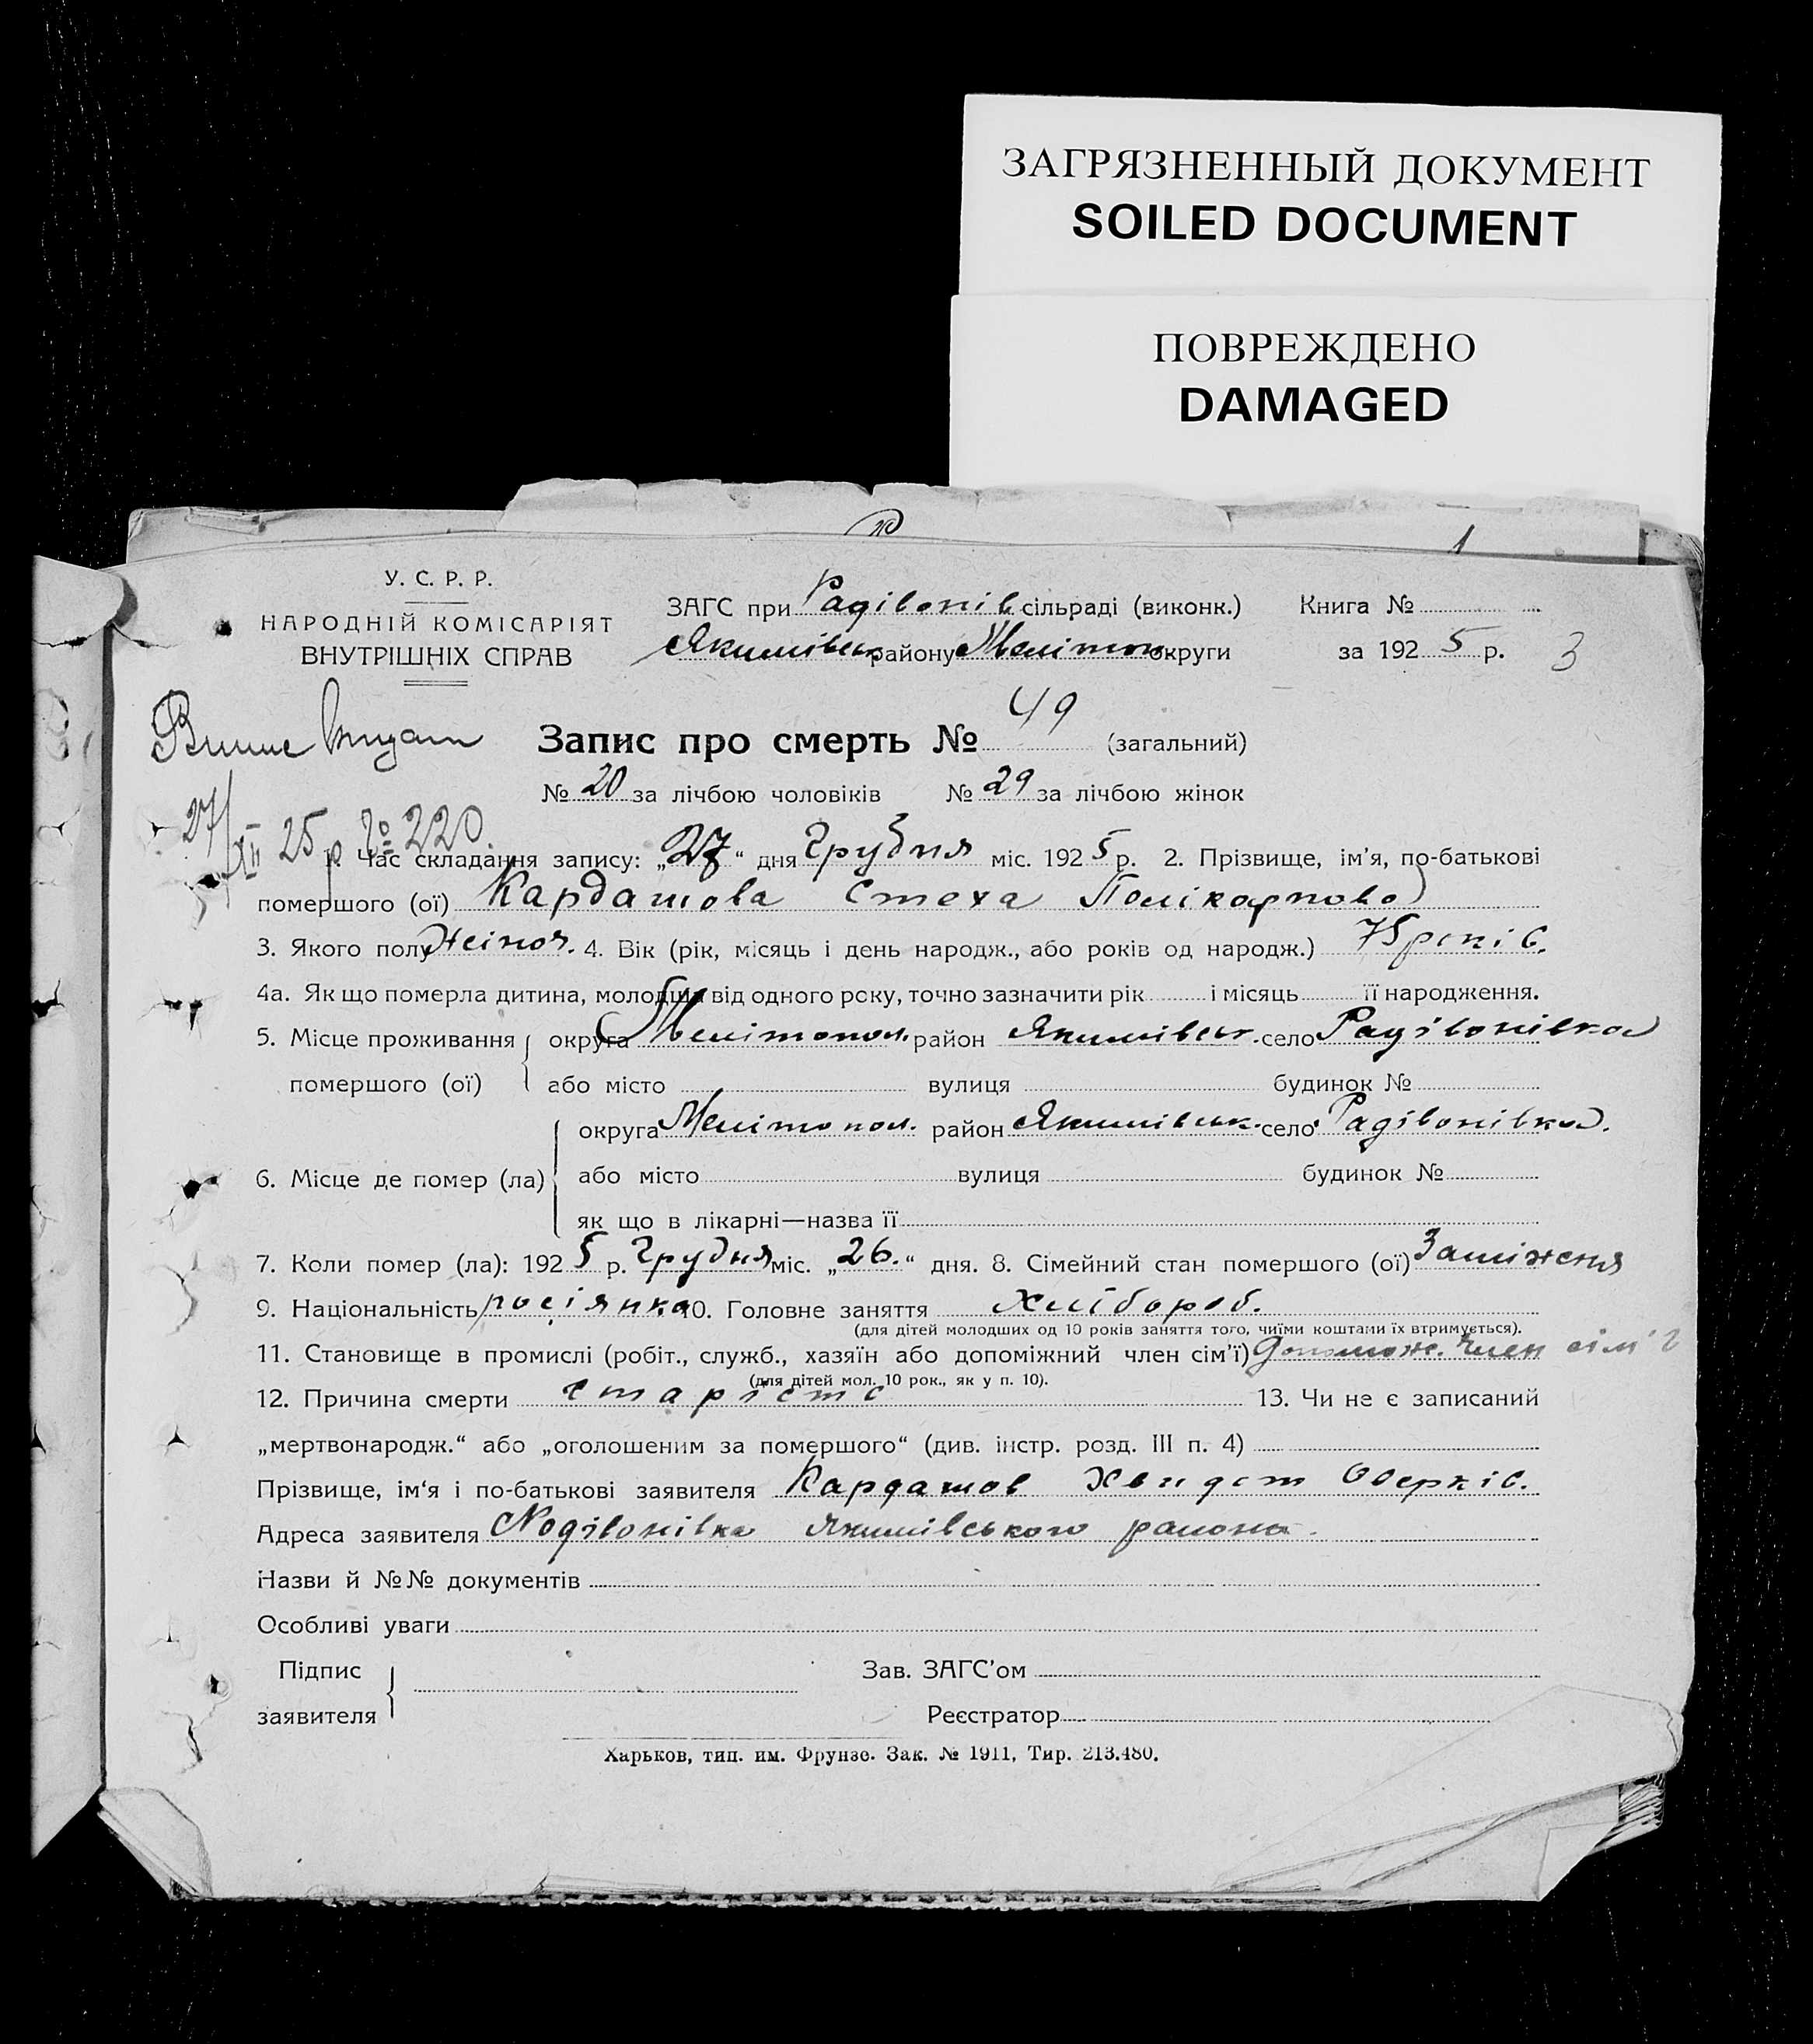 ЗАГРЯЗНЕННЫЙ ДОКУМЕНТ
SOILED DOCUMENT
ПОВРЕЖДЕНО
DAMAGED
1
У. С. Р. Р.
НАРОДНІЙ КОМІСАРІЯТ
ВНУТРІШНІХ СПРАВ
ЗАГС при Радівонів сільраді (виконк.) Книга №
Якимівськ району Мелітоп округи за 1925 р. 3
Запис про смерть № 49 (загальний)
№ 20 за лічбою чоловіків № 29 за лічбою жінок
27/XII 25 р № 220
1. Час складання запису: „27“ дня Грудня міс. 1925 р. 2. Прізвище, ім’я, по-батькові
помершого (ої) Кардашова Стеха Полікарпово
3. Якого полу Жіноч. 4. Вік (рік, місяць і день народж., або років од народж.) 75 років.
4а. Як що померла дитина, молодша від одного року, точно зазначити рік і місяць її народження.
5. Місце проживання помершого (ої) округа Мелітопол. район Якимівськ. село Радівонівка
або місто вулиця будинок №
6. Місце де помер (ла) округа Мелітопол. район Якимівськ. село Радівонівка.
або місто вулиця будинок №
як що в лікарні—назва її
7. Коли помер (ла): 1925 р. Грудня міс. „26.“ дня. 8. Сімейний стан помершого (ої) Заміжня
9. Національність росіянка 10. Головне заняття Хлібороб.
(для дітей молодших од 10 років заняття того, чиїми коштами їх втримується).
11. Становище в промислі (робіт., служб., хазяїн або допоміжний член сім’ї) Допомож. член сім'ї
(для дітей мол. 10 рок., як у п. 10).
12. Причина смерти старість 13. Чи не є записаний
„мертвонародж.“ або „оголошеним за помершого“ (див. інстр. розд. III п. 4)
Прізвище, ім‘я і по-батькові заявителя Кардашов
Адреса заявителя Родівонівка Якимівського района.
Назви й №№ документів
Особливі уваги
Підпис заявителя Зав. ЗАГС’ом
Реєстратор
Харьков, тип. им. Фрунзе. Зак. № 1911, Тир. 213.480.